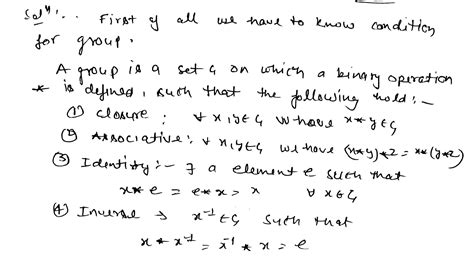 Solⁿ:. First of all we have to know condition
for group.
A group is a set G on which a binary operation
* is defined, such that the following hold:-
(1) closure: ∀ x,y∈G we have x*y∈G
(2) Associative: ∀ x,y∈G we have (x*y)*z = x*(y*z)
(3) Identity:- ∃ a element e such that
x*e = e*x = x ∀ x∈G
(4) Inverse → x⁻¹∈G such that
x * x⁻¹ = x⁻¹ * x = e